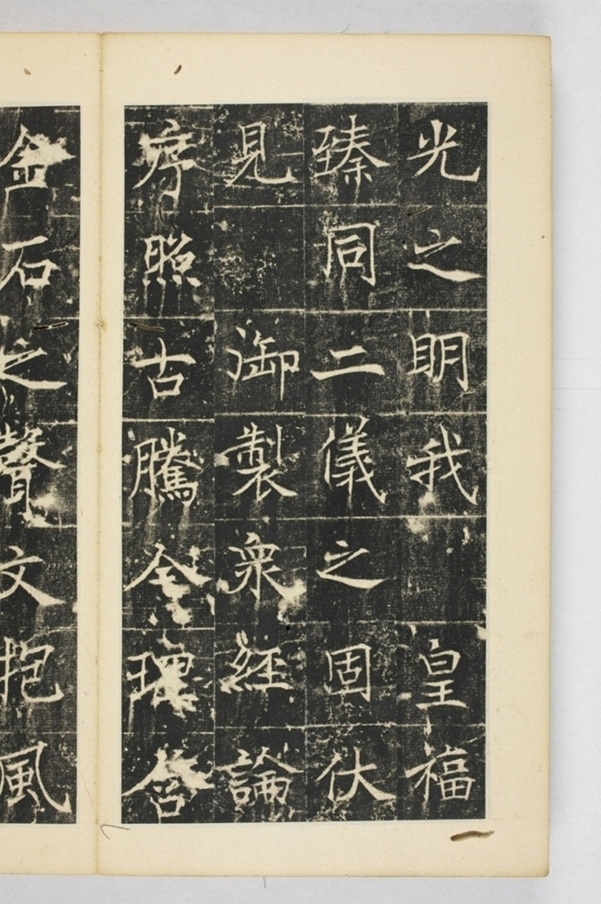 光之明我　皇福
臻同二儀之固伏
見　御製衆經論
序照古騰今理含
金石之聲文抱風